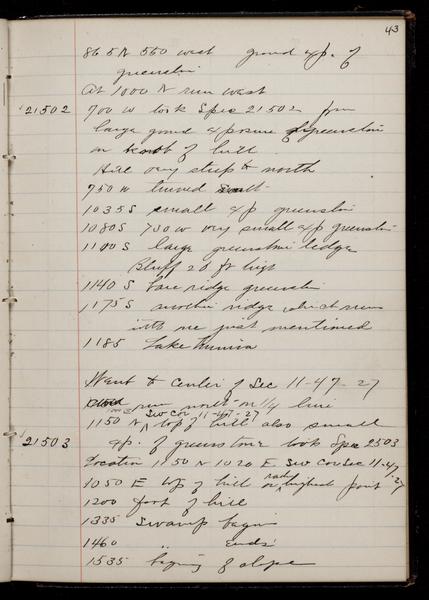 43
865 N 550 west good exp. of
greenston
At 1000 N run west
21502 700 W took Spec 21502 from
large good exposure of greenston
on north of hill.
Hill very steep to north
750 W turned south
1035 S small exp greenston
1080 S 730 W very small exp greenston
1100 S large greenston ledge
Bluff 20 ft high
1140 S bare ridge greenston
1175 S another ridge which runs
into one just mentioned
1185 Lake
Went to Center of Sec 11-47-27
run north on 1/4 line
SW Cor 11-47-27
1150 N top of hill also small
21503 exp. of greenstone took Spec 2503
Location 1150 N 1020 E SW Cor Sec 11-47-27
1050 E top of hill or highest point
1200 foot of hill
1335 Swamp begins
1460 " ends
1535 begining of slope